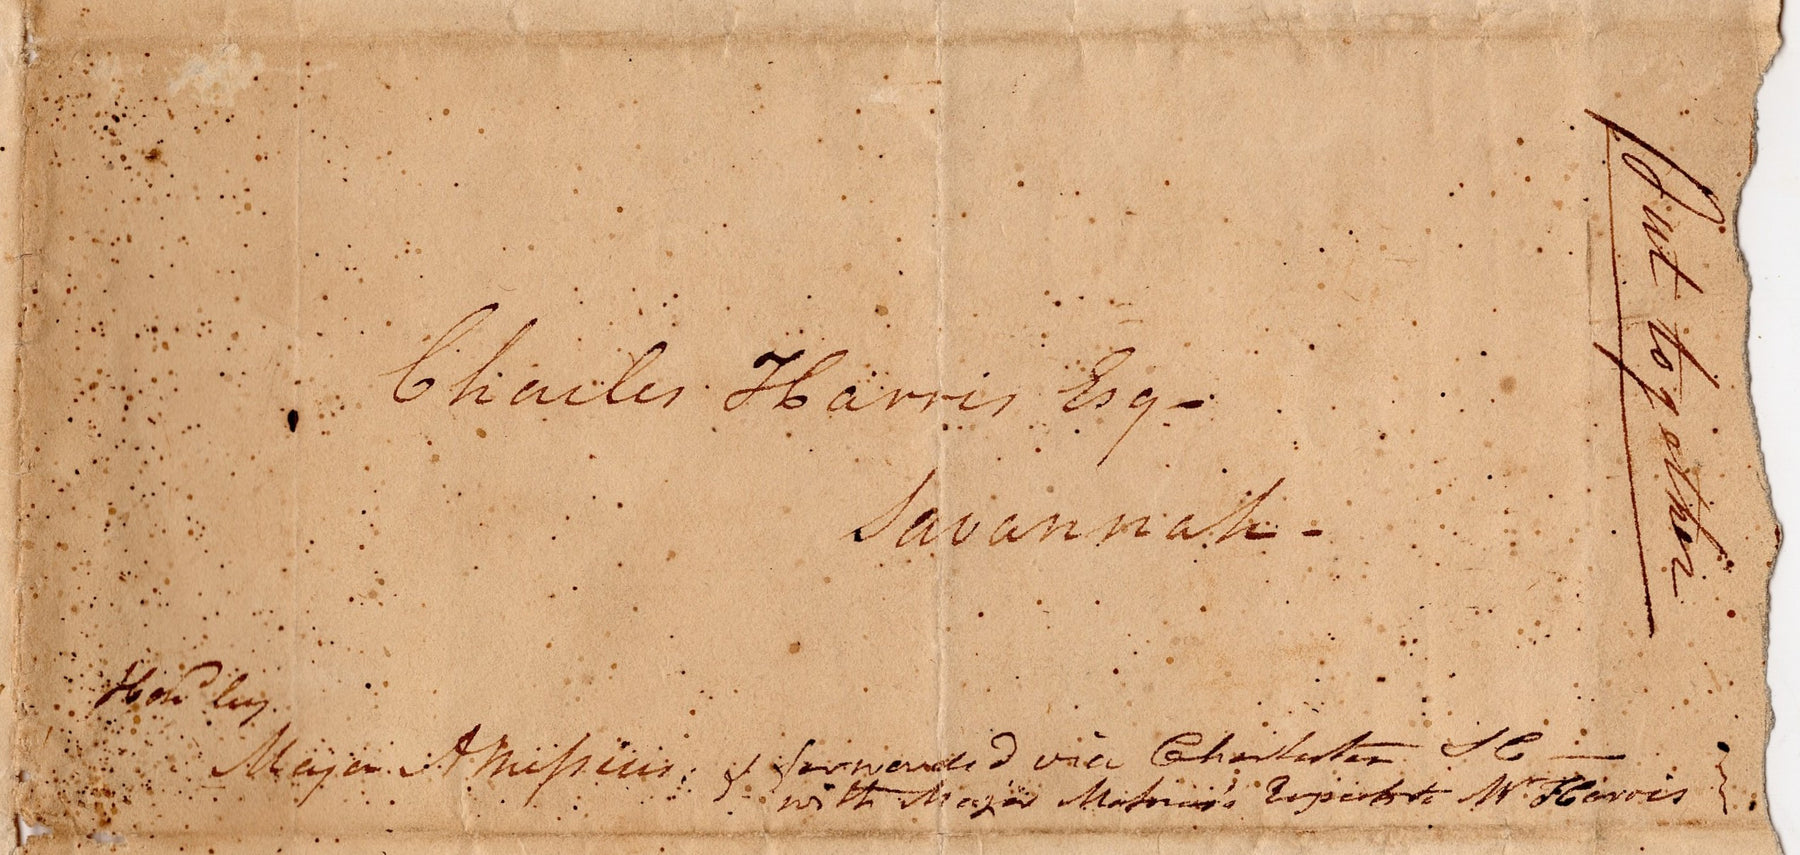 Charles Harris Esq-
Savannah-
Put together
Hon^d by
Major
& forwarded via Charleston SC —
with Major Respects to Mr Harris